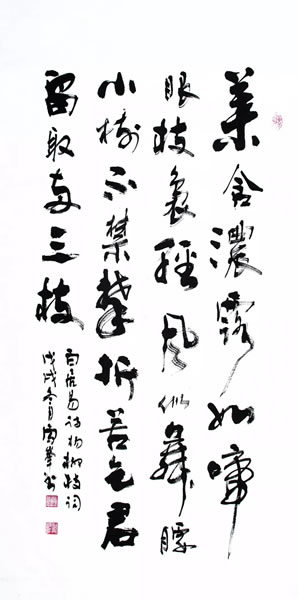 葉含濃露如啼
眼枝裊輕風似舞腰
小樹不禁攀折苦乞君
留取兩三枝
白居易詩楊柳枝詞
戊戌冬月書